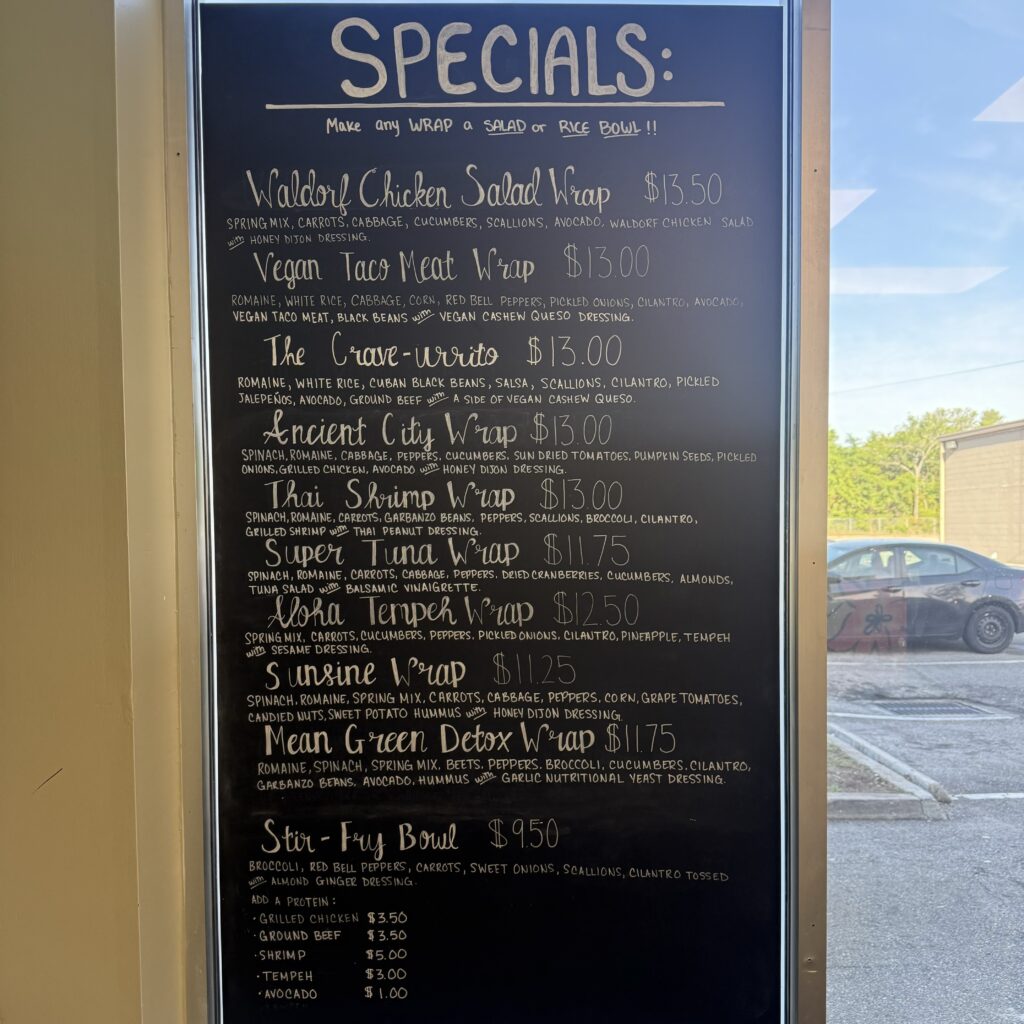 SPECIALS:
Make any WRAP a SALAD or RICE BOWL!!
Waldorf Chicken Salad Wrap $13.50
SPRING MIX, CARROTS, CABBAGE, CUCUMBERS, SCALLIONS, AVOCADO, WALDORF CHICKEN SALAD
with HONEY DIJON DRESSING.
Vegan Taco Meat Wrap $13.00
ROMAINE, WHITE RICE, CABBAGE, CORN, RED BELL PEPPERS, PICKLED ONIONS, CILANTRO, AVOCADO,
VEGAN TACO MEAT, BLACK BEANS with VEGAN CASHEW QUESO DRESSING.
The Crave-urrito $13.00
ROMAINE, WHITE RICE, CUBAN BLACK BEANS, SALSA, SCALLIONS, CILANTRO, PICKLED
JALEPEÑOS, AVOCADO, GROUND BEEF with A SIDE OF VEGAN CASHEW QUESO.
Ancient City Wrap $13.00
SPINACH, ROMAINE, CABBAGE, PEPPERS, CUCUMBERS, SUN DRIED TOMATOES, PUMPKIN SEEDS, PICKLED
ONIONS, GRILLED CHICKEN, AVOCADO with HONEY DIJON DRESSING.
Thai Shrimp Wrap $13.00
SPINACH, ROMAINE, CARROTS, GARBANZO BEANS, PEPPERS, SCALLIONS, BROCCOLI, CILANTRO,
GRILLED SHRIMP with THAI PEANUT DRESSING.
Super Tuna Wrap $11.75
SPINACH, ROMAINE, CARROTS, CABBAGE, PEPPERS, DRIED CRANBERRIES, CUCUMBERS, ALMONDS,
TUNA SALAD with BALSAMIC VINAIGRETTE.
Aloha Tempeh Wrap $12.50
SPRING MIX, CARROTS, CUCUMBERS, PEPPERS, PICKLED ONIONS, CILANTRO, PINEAPPLE, TEMPEH
with SESAME DRESSING.
Sunsine Wrap $11.25
SPINACH, ROMAINE, SPRING MIX, CARROTS, CABBAGE, PEPPERS, CORN, GRAPE TOMATOES,
CANDIED NUTS, SWEET POTATO HUMMUS with HONEY DIJON DRESSING.
Mean Green Detox Wrap $11.75
ROMAINE, SPINACH, SPRING MIX, BEETS, PEPPERS, BROCCOLI, CUCUMBERS, CILANTRO,
GARBANZO BEANS, AVOCADO, HUMMUS with GARLIC NUTRITIONAL YEAST DRESSING.
Stir-Fry Bowl $9.50
BROCCOLI, RED BELL PEPPERS, CARROTS, SWEET ONIONS, SCALLIONS, CILANTRO TOSSED
with ALMOND GINGER DRESSING.
ADD A PROTEIN:
· GRILLED CHICKEN $3.50
· GROUND BEEF $3.50
· SHRIMP $5.00
· TEMPEH $3.00
· AVOCADO $1.00